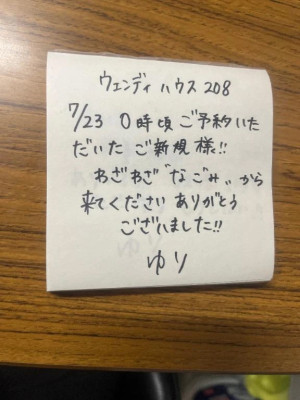 ウェンディハウス 208
7/23 0時頃ご予約いた
だいたご新規様!!
わざわざ"なごみ"から
来てくださいありがとう
ございました!!
ゆり